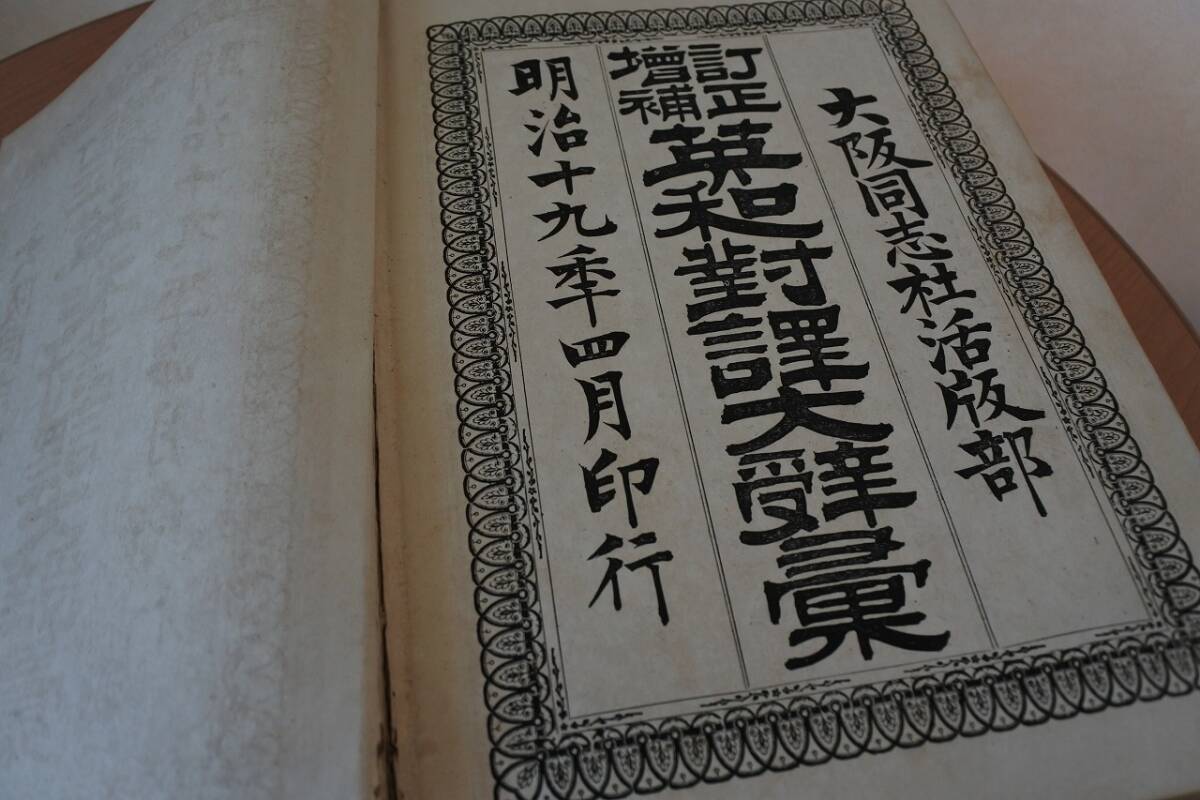 大阪同志社活版部
訂正
增補
英和對譯大辭彙
明治十九季四月印行